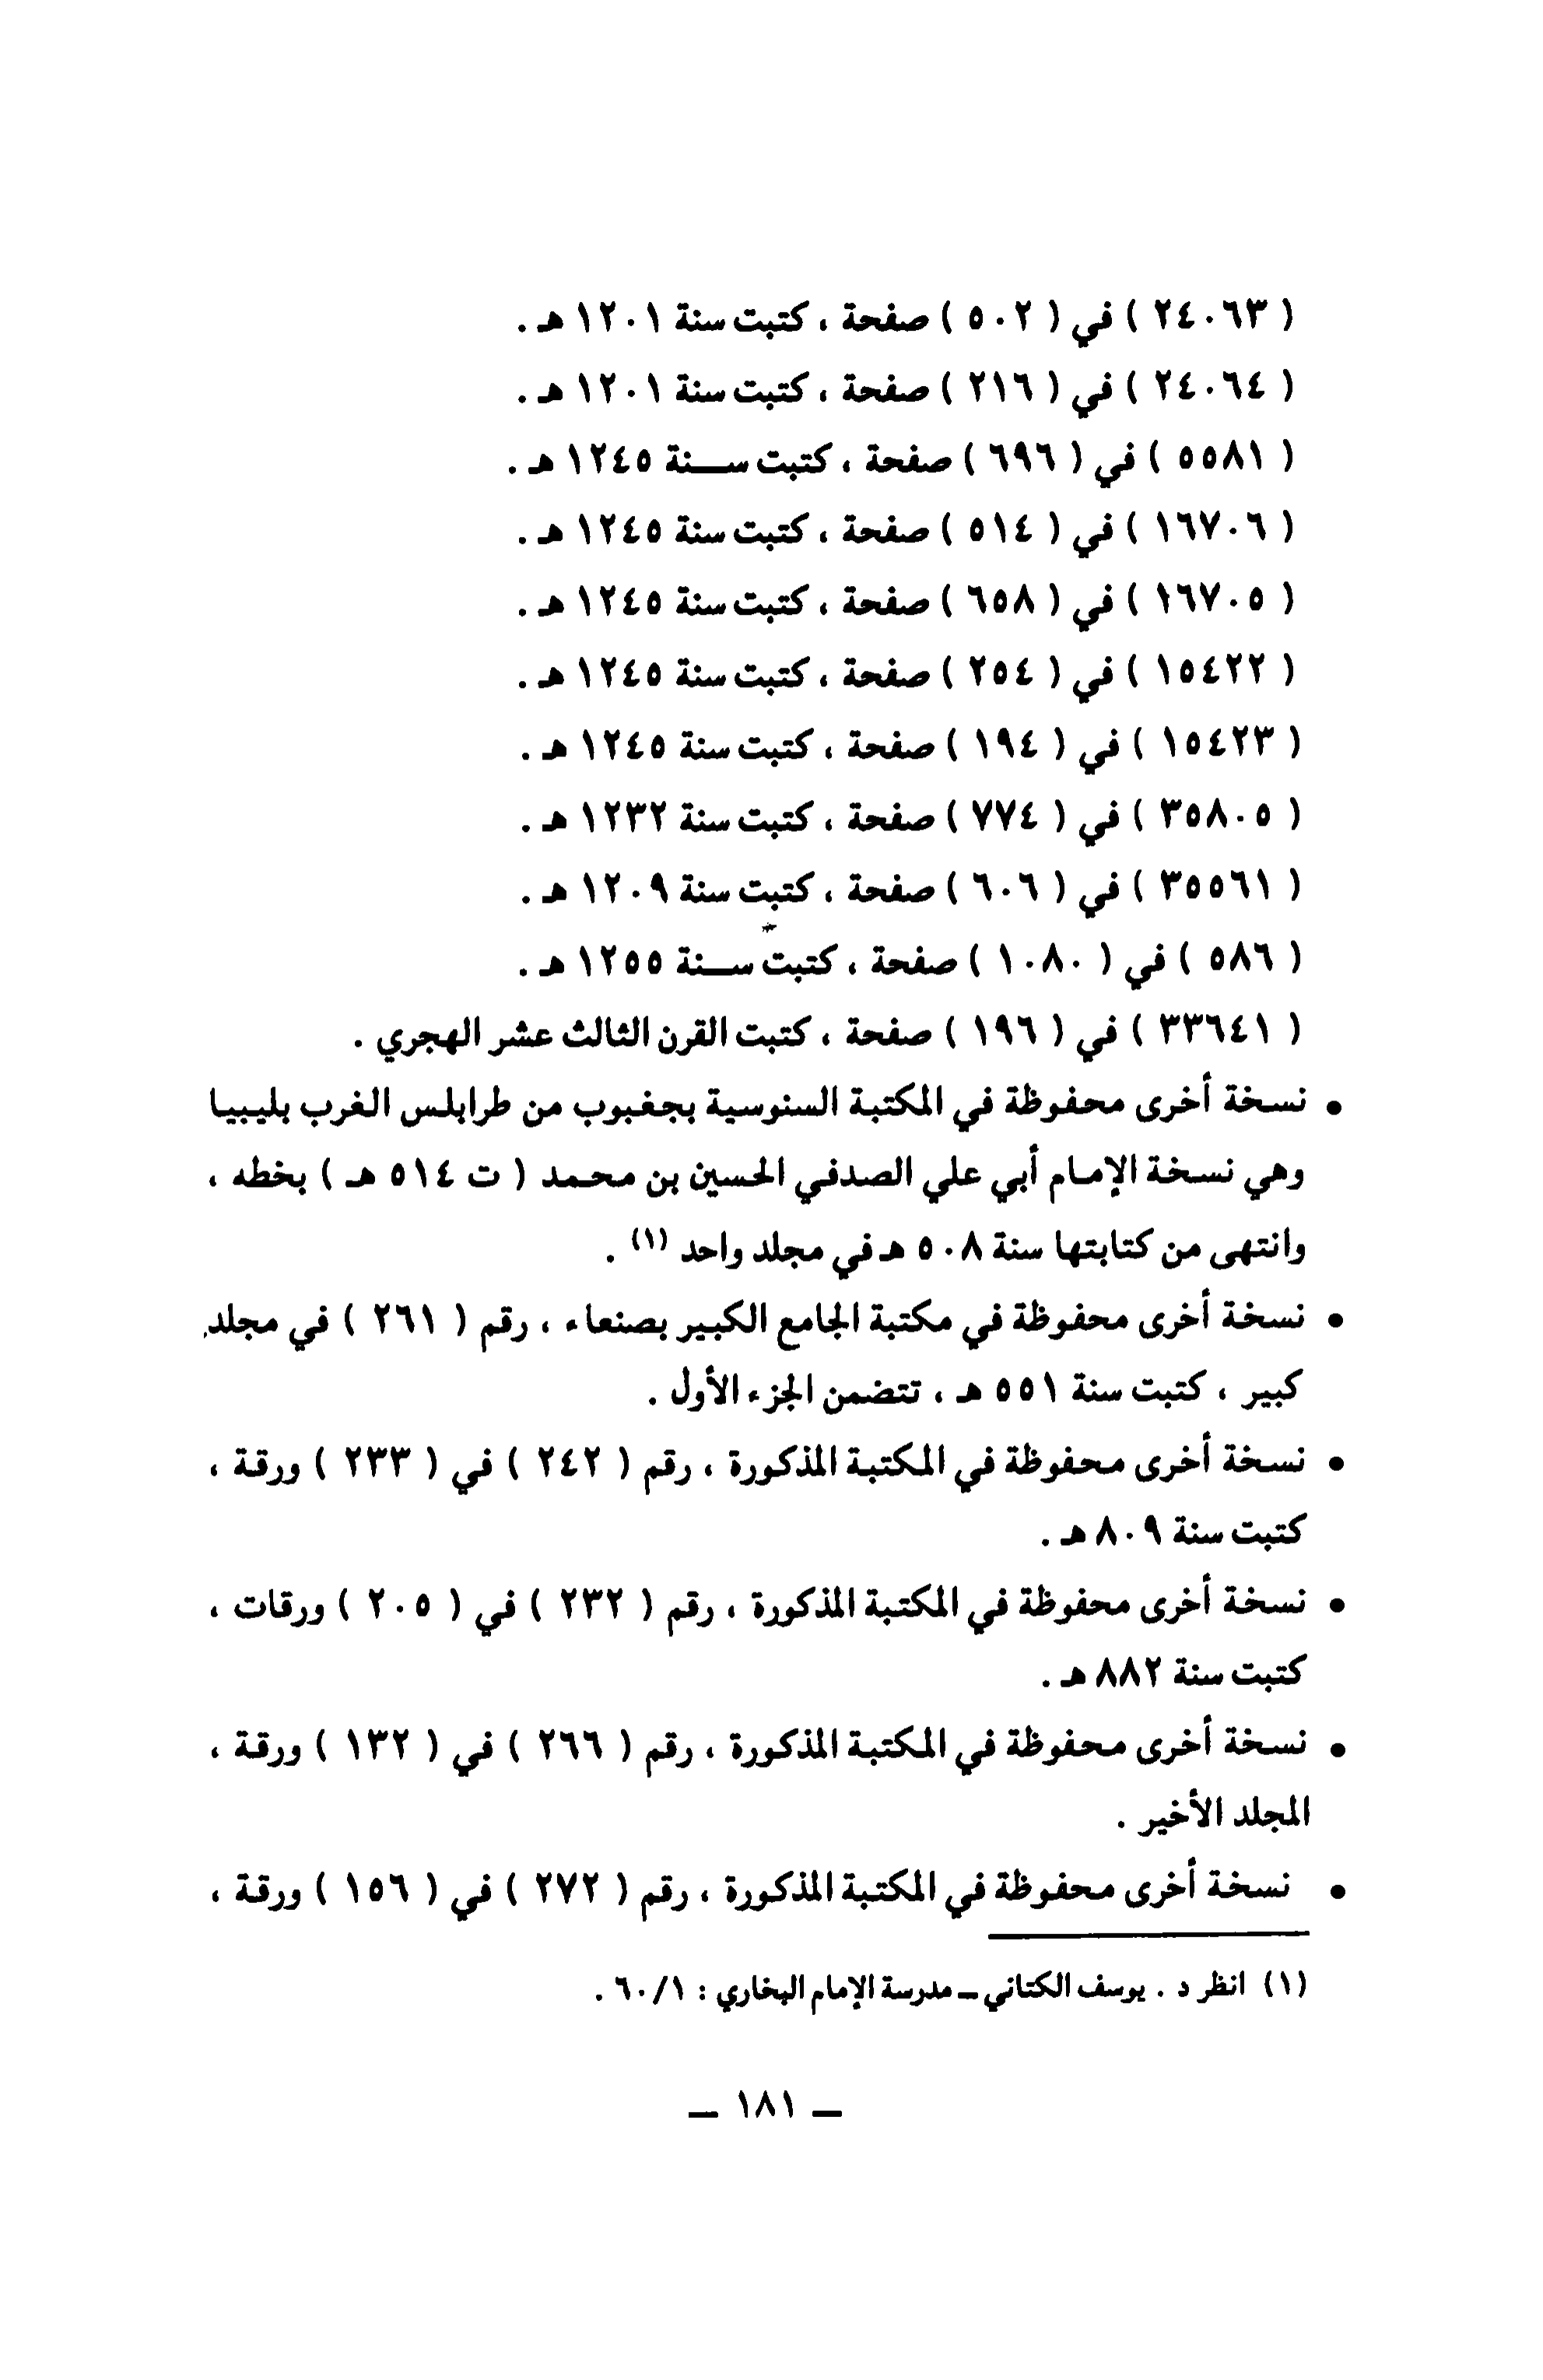 ( ٢٤٠٦٣ ) في ( ٥٠٢ ) صفحة ، كتبت سنة ١٢٠١ هـ .
( ٢٤٠٦٤ ) في ( ٢١٦ ) صفحة ، كتبت سنة ١٢٠١ هـ .
( ٥٥٨١ ) في ( ٦٩٦ ) صفحة ، كتبت ســنة ١٢٤٥ هـ .
( ١٦٧٠٦ ) في ( ٥١٤ ) صفحة ، كتبت سنة ١٢٤٥ هـ .
( ١٦٧٠٥ ) في ( ٦٥٨ ) صفحة ، كتبت سنة ١٢٤٥ هـ .
( ١٥٤٢٢ ) في ( ٢٥٤ ) صفحة ، كتبت سنة ١٢٤٥ هـ .
( ١٥٤٢٣ ) في ( ١٩٤ ) صفحة ، كتبت سنة ١٢٤٥ هـ .
( ٣٥٨٠٥ ) في ( ٧٧٤ ) صفحة ، كتبت سنة ١٢٣٢ هـ .
( ٣٥٥٦١ ) في ( ٦٠٦ ) صفحة ، كتبت سنة ١٢٠٩ هـ .
( ٥٨٦ ) في ( ١٠٨٠ ) صفحة ، كتبت ســنة ١٢٥٥ هـ .
( ٣٣٦٤١ ) في ( ١٩٦ ) صفحة ، كتبت القرن الثالث عشر الهجري .
● نسخة أخرى محفوظة في المكتبة السنوسية بجغبوب من طرابلس الغرب بليبيا
وهي نسخة الإمام أبي علي الصدفي الحسين بن محمد ( ت ٥١٤ هـ ) بخطه ،
وانتهى من كتابتها سنة ٥٠٨ هـ في مجلد واحد (١) .
● نسخة أخرى محفوظة في مكتبة الجامع الكبير بصنعاء ، رقم ( ٢٦١ ) في مجلد
كبير ، كتبت سنة ٥٥١ هـ ، تتضمن الجزء الأول .
● نسخة أخرى محفوظة في المكتبة المذكورة ، رقم ( ٢٤٢ ) في ( ٢٣٣ ) ورقة ،
كتبت سنة ٨٠٩ هـ .
● نسخة أخرى محفوظة في المكتبة المذكورة ، رقم ( ٢٣٢ ) في ( ٢٠٥ ) ورقات ،
كتبت سنة ٨٨٢ هـ .
● نسخة أخرى محفوظة في المكتبة المذكورة ، رقم ( ٢٦٦ ) في ( ١٣٢ ) ورقة ،
المجلد الأخير .
● نسخة أخرى محفوظة في المكتبة المذكورة ، رقم ( ٢٧٢ ) في ( ١٥٦ ) ورقة ،
(١) انظر د . يوسف الكتاني ـ مدرسة الإمام البخاري : ٦٠/١ .
ـ ١٨١ ـ